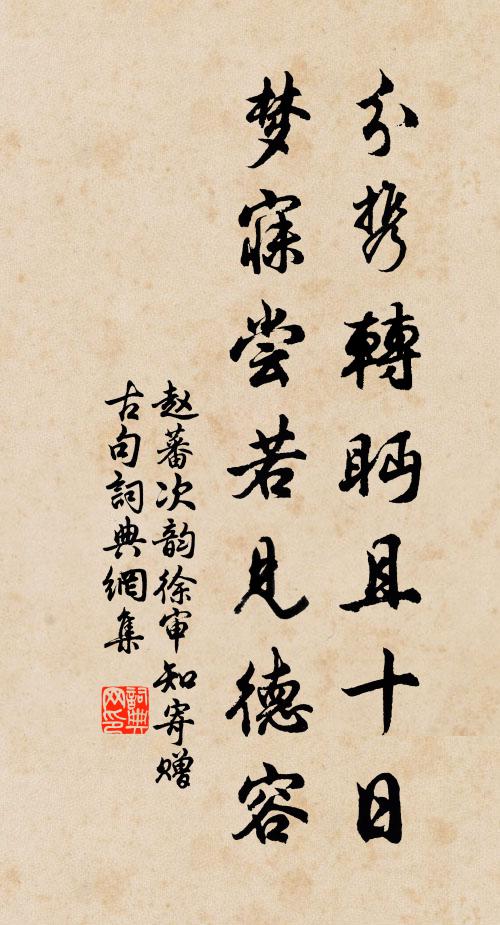 分携轉眄且十日
梦寐尝若見德容
赵蕃次韵徐审知寄赠
古句詞典網集
詞典网印